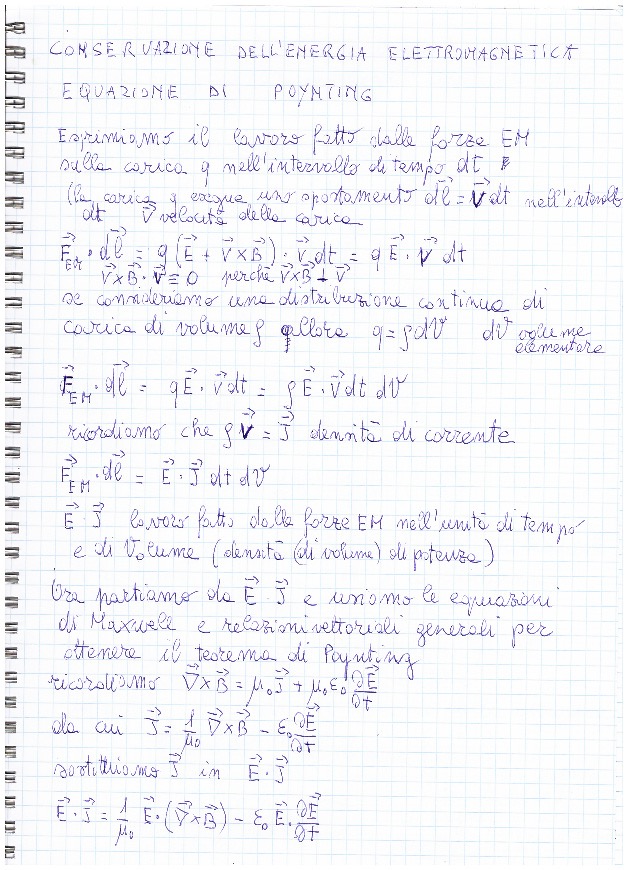 CONSERVAZIONE DELL'ENERGIA ELETTROMAGNETICA
EQUAZIONE DI POYNTING
Esprimiamo il lavoro fatto dalle forze EM
sulla carica q nell'intervallo di tempo dt
(la carica q esegua uno spostamento d\vec{l} = \vec{v} dt nell'intervallo
dt \vec{v} velocità della carica
\vec{F}_{EM} · d\vec{l} = q(\vec{E} + \vec{v}×\vec{B}) · \vec{v} dt = q \vec{E} · \vec{v} dt
\vec{v}×\vec{B} · \vec{v} ≡ 0 perché \vec{v}×\vec{B} ⊥ \vec{v}
se consideriamo una distribuzione continua di
carica di volume ρ allora q = ρ dV dV volume
elementare
\vec{F}_{EM} · d\vec{l} = q \vec{E} · \vec{v} dt = ρ \vec{E} · \vec{v} dt dV
ricordiamo che ρ \vec{v} = \vec{J} densità di corrente
\vec{F}_{EM} · d\vec{l} = \vec{E} · \vec{J} dt dV
\vec{E} · \vec{J} lavoro fatto dalle forze EM nell'unità di tempo
e di Volume (densità (di volume) di potenza)
Ora partiamo da \vec{E} · \vec{J} e usiamo le equazioni
di Maxwell e relazioni vettoriali generali per
ottenere il teorema di Poynting
ricordiamo \vec{∇}×\vec{B} = μ₀ \vec{J} + μ₀ ε₀ ∂\vec{E}/∂t
da cui \vec{J} = 1/μ₀ \vec{∇}×\vec{B} − ε₀ ∂\vec{E}/∂t
sostituiamo \vec{J} in \vec{E} · \vec{J}
\vec{E} · \vec{J} = 1/μ₀ \vec{E} · (\vec{∇}×\vec{B}) − ε₀ \vec{E} · ∂\vec{E}/∂t